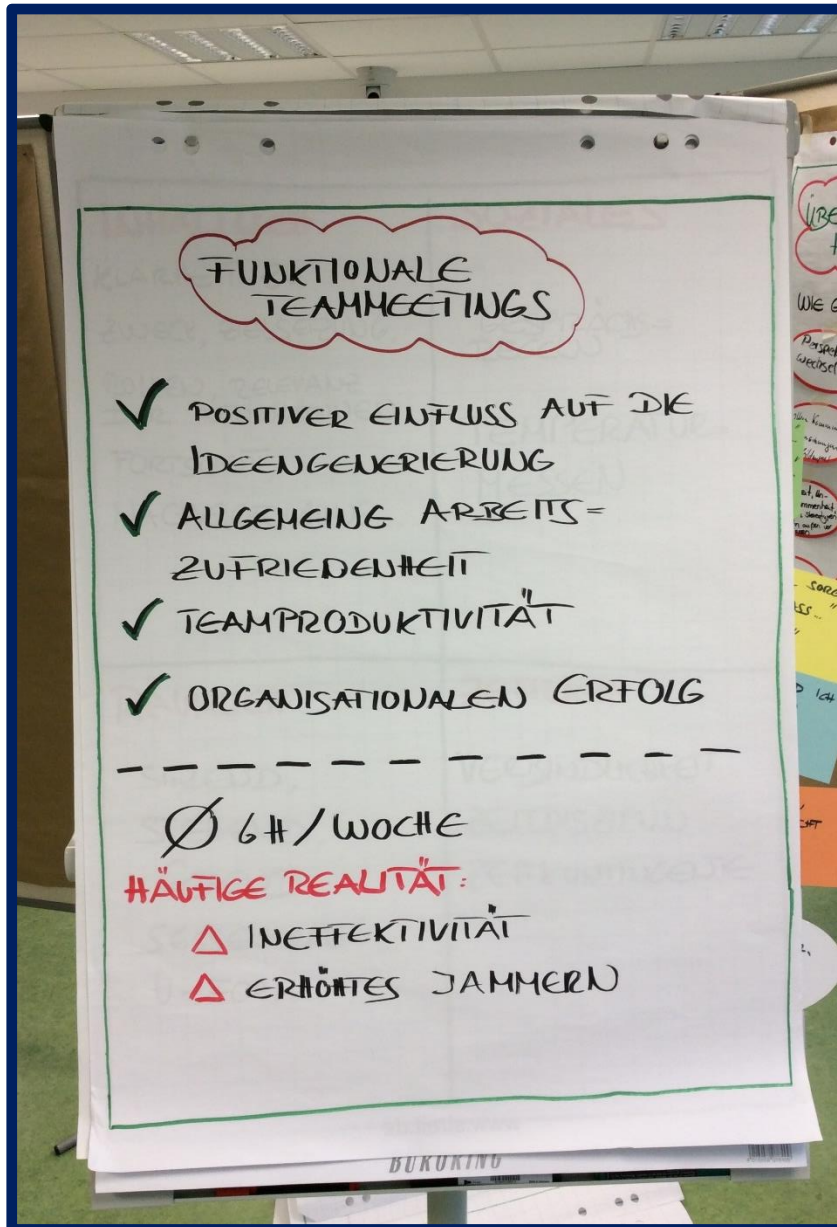 FUNKTIONALE
TEAMMEETINGS
✓ POSITIVER EINFLUSS AUF DIE
IDEENGENERIERUNG
✓ ALLGEMEINE ARBEITS=
ZUFRIEDENHEIT
✓ TEAMPRODUKTIVITÄT
✓ ORGANISATIONALEN ERFOLG
Ø 6H/WOCHE
HÄUFIGE REALITÄT:
△ INEFFEKTIVITÄT
△ ERHÖHTES JAMMERN
BÜROKING
WIE
ICH